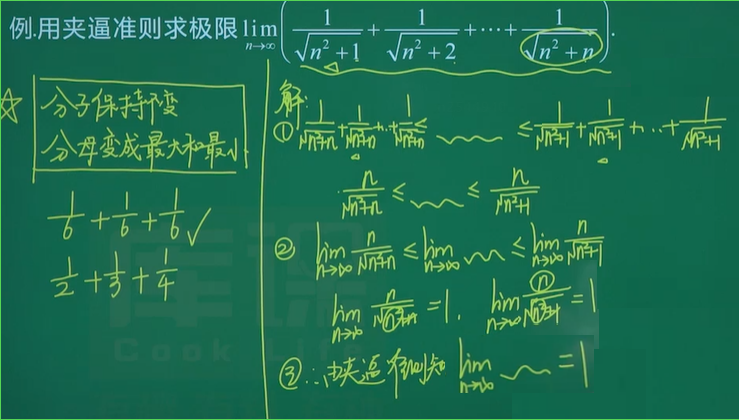 例.用夹逼准则求极限 lim n→∞ (1/√(n²+1) + 1/√(n²+2) + ⋯ + 1/√(n²+n)).
☆ 分子保持不变
分母变成最大和最小
1/6 + 1/6 + 1/6 ✓
1/2 + 1/3 + 1/4
解:
① 1/√(n²+n) + 1/√(n²+n) + ⋯ + 1/√(n²+n) ≤ ﹏﹏ ≤ 1/√(n²+1) + 1/√(n²+1) + ⋯ + 1/√(n²+1)
n/√(n²+n) ≤ ﹏﹏ ≤ n/√(n²+1)
② lim n→∞ n/√(n²+n) ≤ lim n→∞ ﹏﹏ ≤ lim n→∞ n/√(n²+1)
lim n→∞ n/√(n²+n) = 1. lim n→∞ n/√(n²+1) = 1
③ ∴由夹逼准则知 lim n→∞ ﹏﹏ = 1
库课
Cook L